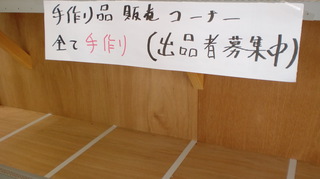 手作り品 販売 コーナー
全て手作り (出品者募集中)